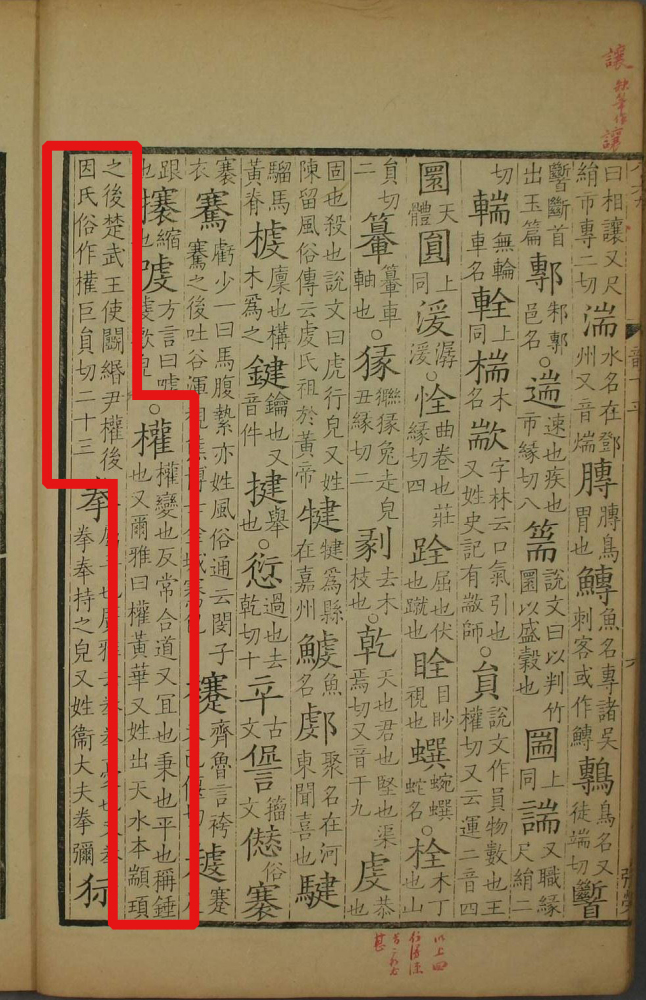 曰相讓又尺絹市專二切湍水名在鄧州又音煓膞膞鳥胃也鱄魚名專諸吳刺客或作鱄鷒鳥名又徒端切斷
斷斷首出玉篇鄟邾鄟邑名○遄速也疾也市緣切八篅說文曰以判竹圜以盛穀也圌上同諯又職緣尺絹二
切輲無輪車名輇上同椯木名歂字林云口氣引也又姓史記有歂師○員說文作員物數也王權切又云運二音四
圜天體圓上同湲潺湲○恮曲卷也莊緣切四跧屈也伏也蹴也目眇視也蟤蜿蟤蛇名○栓木丁也山
員切二車軸也○猭猭兔走皃丑緣切二剶去木枝也○乾天也君也堅也渠焉切又音干九虔恭也
固也殺也說文曰虎行皃又姓陳留風俗傳云虔氏祖於黃帝犍犍為縣在嘉州鰬魚名聚名在河東聞喜也騝
騮馬黃脊榩廩也構木爲之鍵鑰也又音件揵舉也○愆過也去乾切十古文諐籀文俗褰
褰衣騫虧少一曰馬腹縶亦姓風俗通云閔子騫之後吐谷渾視羆博士金城騫包齊魯言袴又己偃切蹇
跟也攐縮也方言曰○權權變也反常合道又宜也秉也平也稱錘也又爾雅曰權黃華又姓出天水本顓頊
之後楚武王使鬬緡尹權後因氏俗作權巨員切二十三拳屈手也廣雅云拳拳憂也又拳拳奉持之皃又姓衞大夫拳彌
讓缺筆作讓